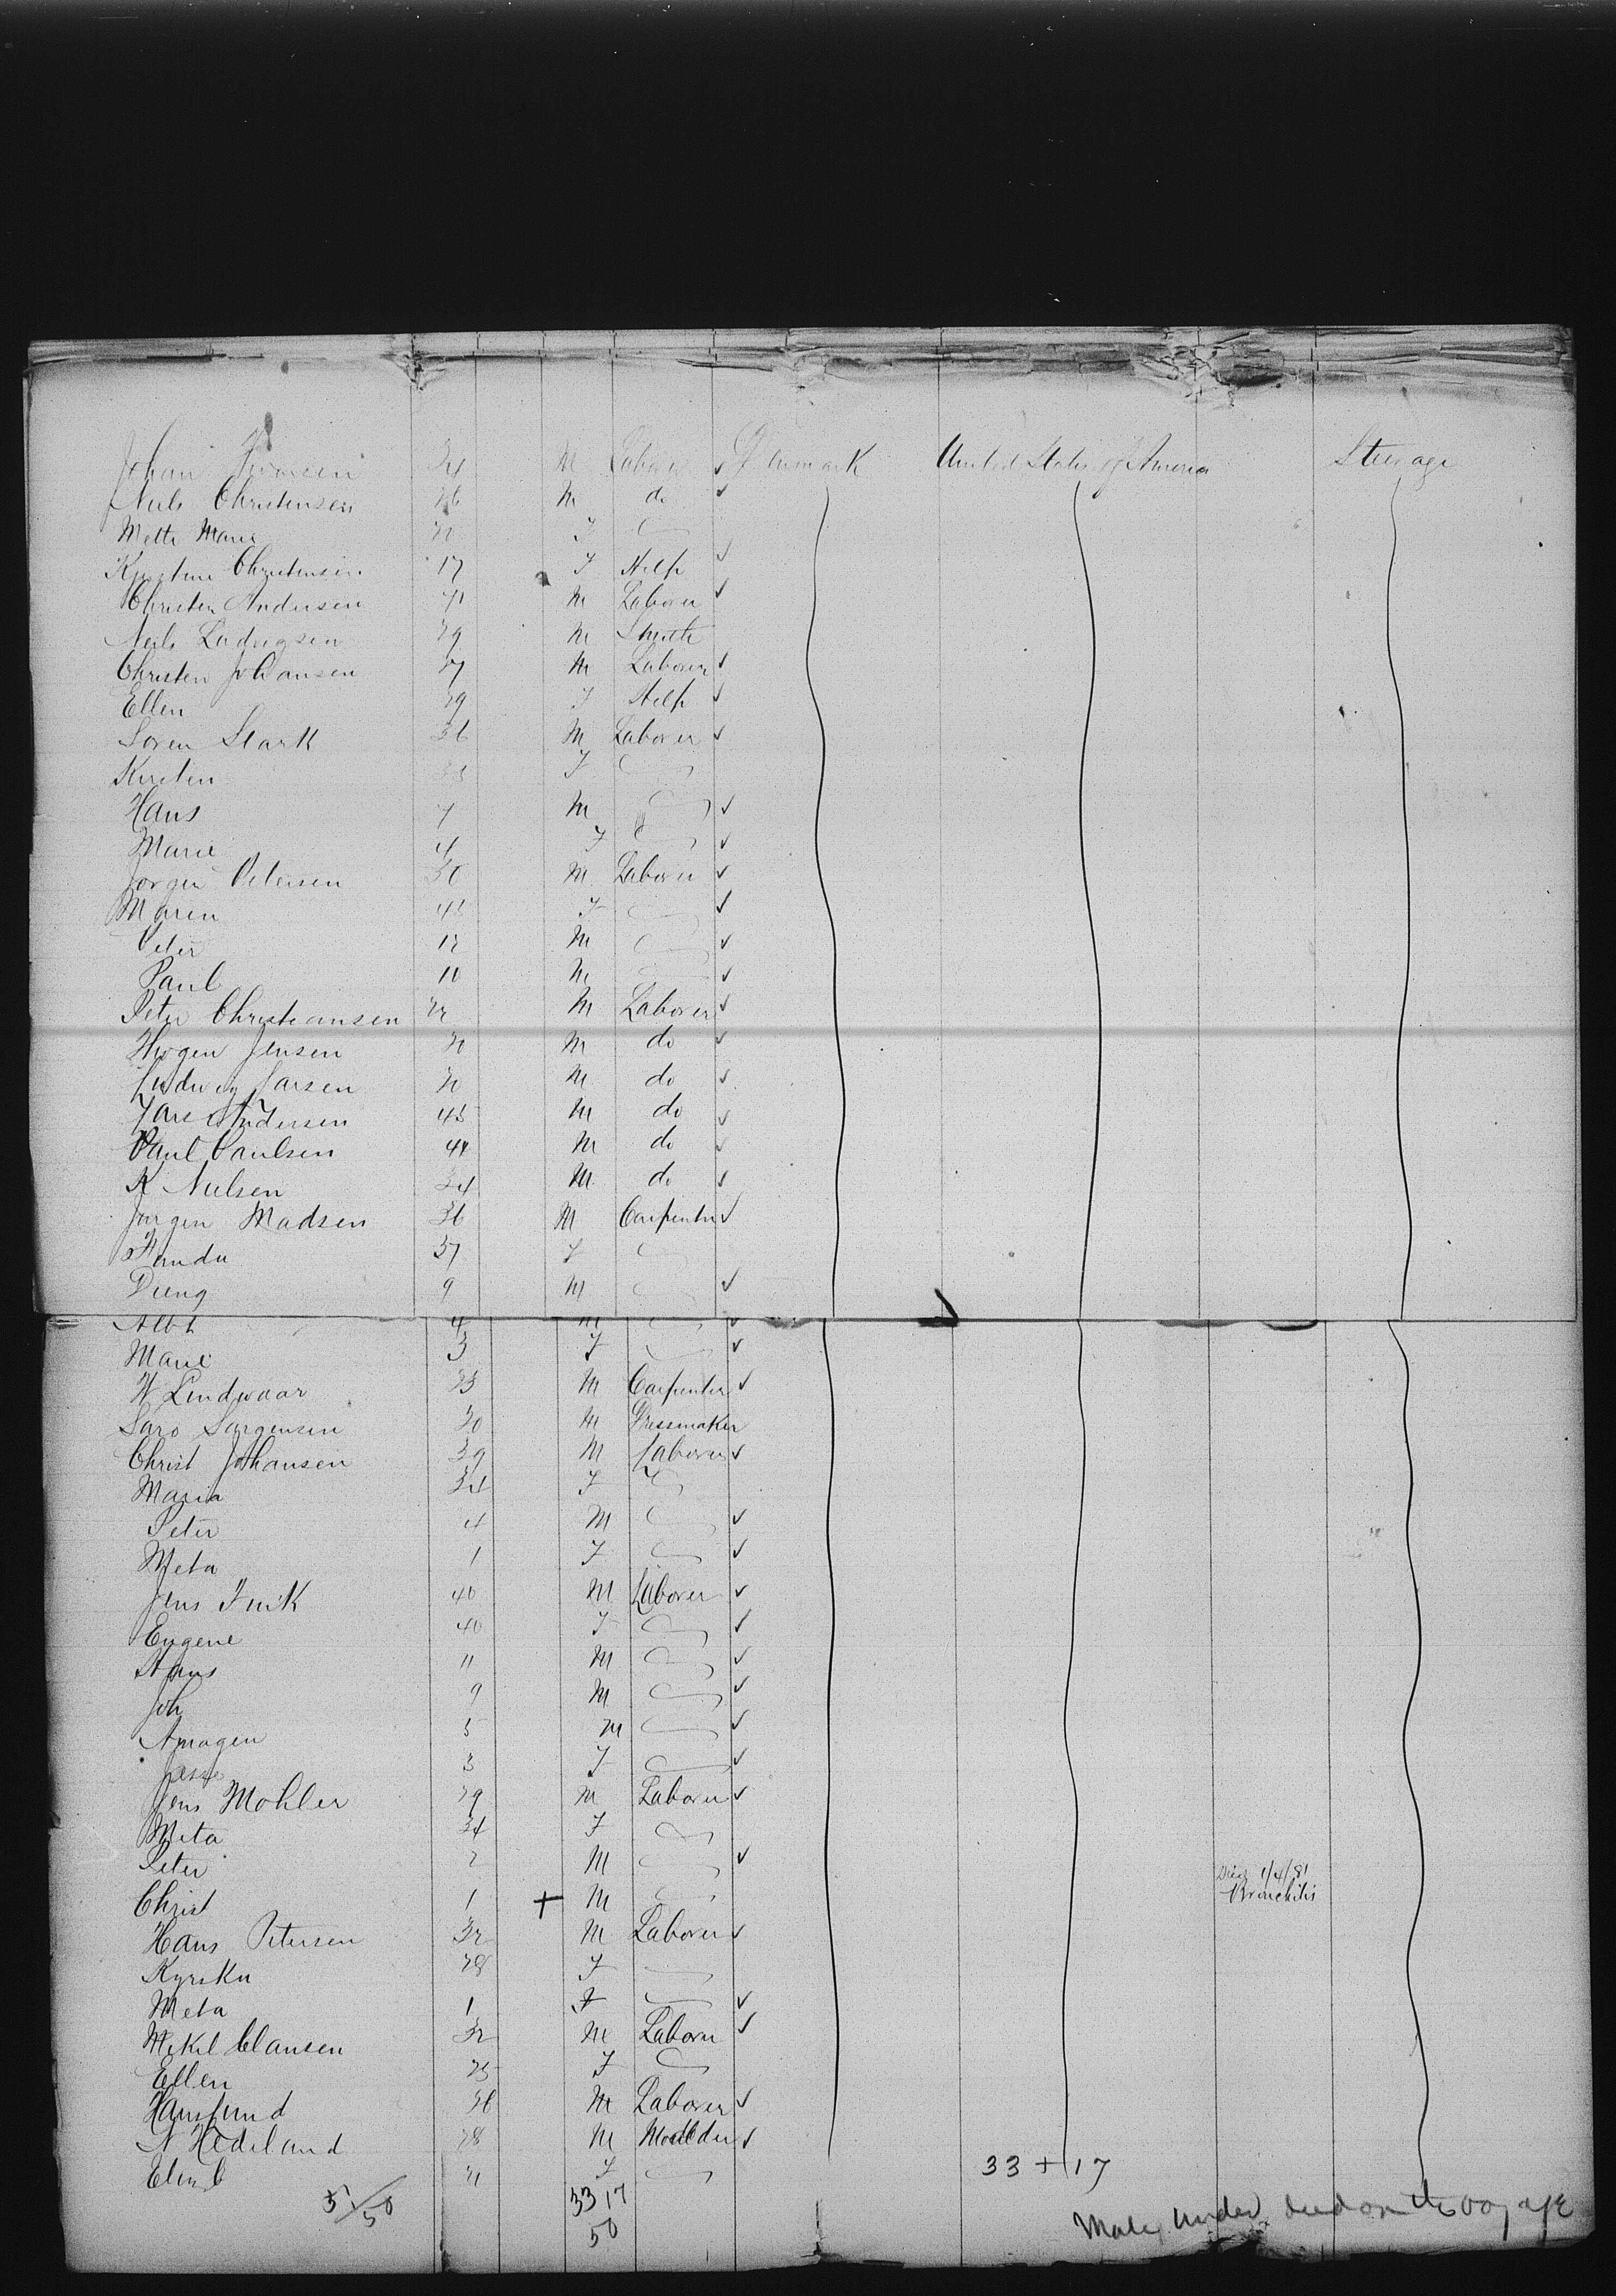 Johan 24 M Laborer ✓ Denmark United States of America Steerage
Niels Christensen 26 M do ✓
Mette Marie F
Christensen 17 F Help ✓
Christen Andersen 41 M Laborer ✓
Neils Ludvigsen 29 M Smith
Christen Johansen 27 M Laborer ✓
Ellen 29 F Help ✓
Soren Stark 36 M Laborer ✓
Kirsten 33 F
Hans 7 M ✓
Marie 4 F ✓
Jorgen Petersen 30 M Laborer ✓
Maren F ✓
Peter 12 M ✓
Paul 10 M ✓
Peter Christiansen 22 M Laborer ✓
Jensen M do ✓
Ludwig Larsen M do ✓
Lars Andersen 45 M do ✓
Paul Paulsen 44 M do ✓
K Nielsen 24 M do ✓
Jorgen Madsen 36 M Carpenter ✓
37 F
9 M ✓
Albt 4 M ✓
Marie 3 F ✓
Lindwaar 23 M Carpenter ✓
Sorgensen M Dressmaker
Christ Johansen 39 M Laborer ✓
Maria 34 F
Peter 4 M ✓
Meta 1 F ✓
Jens 40 M Laborer ✓
Eugene 40 F ✓
Hans 11 M ✓
Joh 9 M ✓
Amagen 5 M ✓
3 F ✓
Jens Mohler 29 M Laborer ✓
Meta 34 F
Peter 2 M ✓
Christ 1 + M Died 1/4/81 Bronchitis
Hans Petersen 32 M Laborer ✓
28 F
Meta 1 F ✓
Mikel Clausen 32 M Laborer ✓
Ellen 25 F
Hans 26 M Laborer ✓
N Hedeland 28 M Moulder ✓
F
33 + 17
51/50 33 17
50
Male under died on the voyage